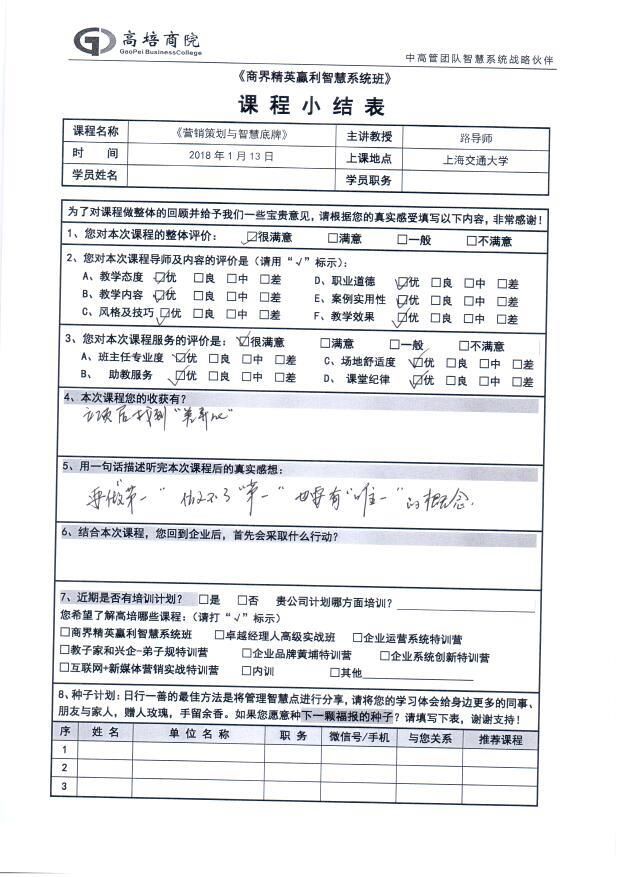 高培商院
GaoPei BusinessCollege
中高管团队智慧系统战略伙伴
《商界精英赢利智慧系统班》
课程小结表
课程名称 《营销策划与智慧底牌》 主讲教授 路导师
时 间 2018 年 1 月 13 日 上课地点 上海交通大学
学员姓名 学员职务
为了对课程做整体的回顾并给予我们一些宝贵意见,请根据您的真实感受填写以下内容,非常感谢!
1、您对本次课程的整体评价: ☑很满意 □满意 □一般 □不满意
2、您对本次课程导师及内容的评价是(请用“√”标示):
A、教学态度 ☑优 □良 □中 □差 D、职业道德 ☑优 □良 □中 □差
B、教学内容 ☑优 □良 □中 □差 E、案例实用性 ☑优 □良 □中 □差
C、风格及技巧 ☑优 □良 □中 □差 F、教学效果 ☑优 □良 □中 □差
3、您对本次课程服务的评价是: ☑很满意 □满意 □一般 □不满意
A、班主任专业度 ☑优 □良 □中 □差 C、场地舒适度 ☑优 □良 □中 □差
B、 助教服务 ☑优 □良 □中 □差 D、 课堂纪律 ☑优 □良 □中 □差
4、本次课程您的收获有?
立项后找到“差异化”
5、用一句话描述听完本次课程后的真实感想:
要做“第一” 做不了“第一” 也要有“唯一”的概念.
6、结合本次课程,您回到企业后,首先会采取什么行动?
7、近期是否有培训计划? □是 □否 贵公司计划哪方面培训?
您希望了解高培哪些课程:(请打“√”标示)
□商界精英赢利智慧系统班 □卓越经理人高级实战班 □企业运营系统特训营
□教子家和兴企-弟子规特训营 □企业品牌黄埔特训营 □企业系统创新特训营
□互联网+新媒体营销实战特训营 □内训 □其他
8、种子计划:日行一善的最佳方法是将管理智慧点进行分享,请将您的学习体会给身边更多的同事、
朋友与家人,赠人玫瑰,手留余香。如果您愿意种下一颗福报的种子?请填写下表,谢谢支持!
序 姓 名 单 位 名 称 职 务 微信号/手机 与您关系 推荐课程
1
2
3